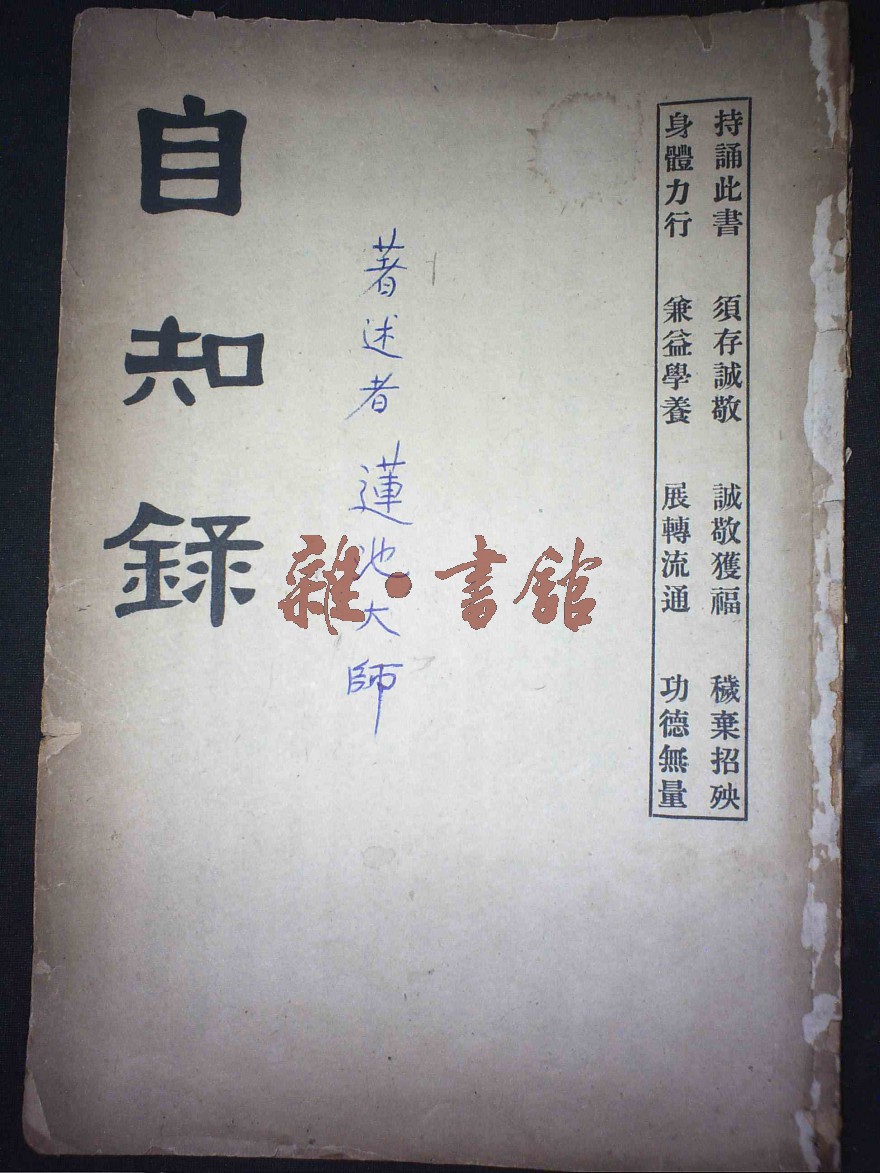 持誦此書 須存誠敬 誠敬獲福 穢棄招殃
身體力行 兼益學養 展轉流通 功德無量
著述者 蓮池大師
自知錄
雜·書館